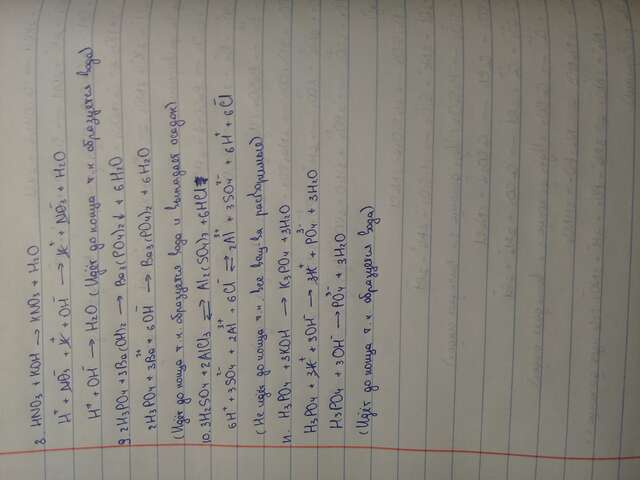 8. HNO3 + KOH → KNO3 + H2O
H⁺ + NO3⁻ + K⁺ + OH⁻ → K⁺ + NO3⁻ + H2O
H⁺ + OH⁻ → H2O (Идёт до конца т.к. образуется вода)
9. 2H3PO4 + 3Ba(OH)2 → Ba3(PO4)2↓ + 6H2O
2H3PO4 + 3Ba²⁺ + 6OH⁻ → Ba3(PO4)2 + 6H2O
(Идёт до конца т.к. образуется вода и выпадает осадок)
10. 3H2SO4 + 2AlCl3 ⇄ Al2(SO4)3 + 6HCl
6H⁺ + 3SO4²⁻ + 2Al³⁺ + 6Cl⁻ ⇄ 2Al³⁺ + 3SO4²⁻ + 6H⁺ + 6Cl⁻
(Не идёт до конца т.к. все вещ-ва растворимые)
11. H3PO4 + 3KOH → K3PO4 + 3H2O
H3PO4 + 3K⁺ + 3OH⁻ → 3K⁺ + PO4³⁻ + 3H2O
H3PO4 + 3OH⁻ → PO4³⁻ + 3H2O
(Идёт до конца т.к. образуется вода)